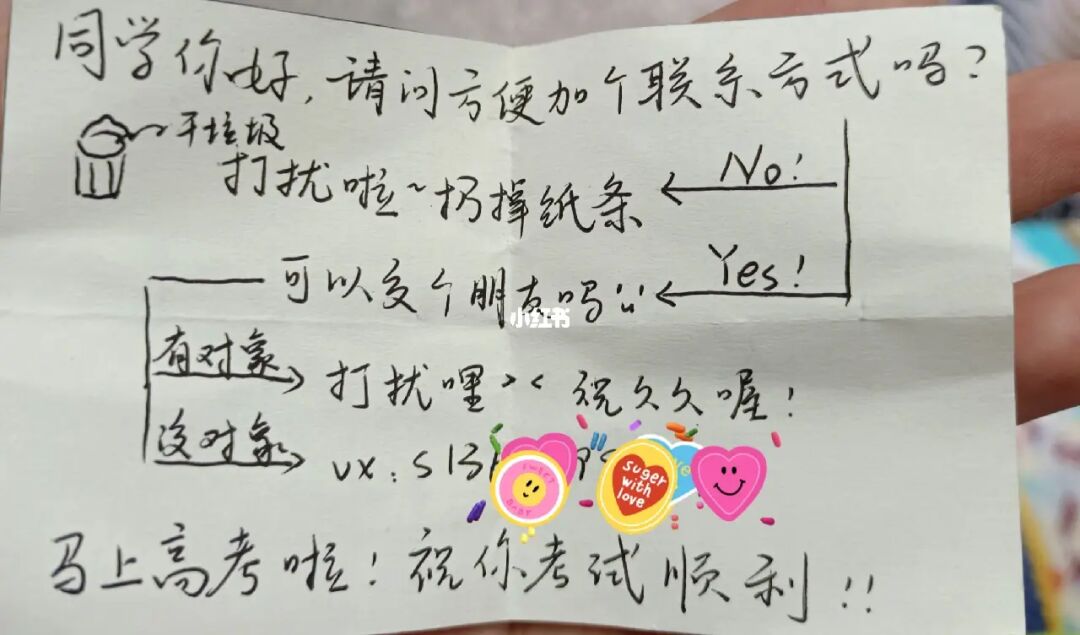 同学你好,请问方便加个联系方式吗?
干垃圾
No!
打扰啦~扔掉纸条
Yes!
可以交个朋友吗
小红书
有对象
打扰哩>< 祝久久喔!
没对象
vx:
suger with love
马上高考啦!祝你考试顺利!!